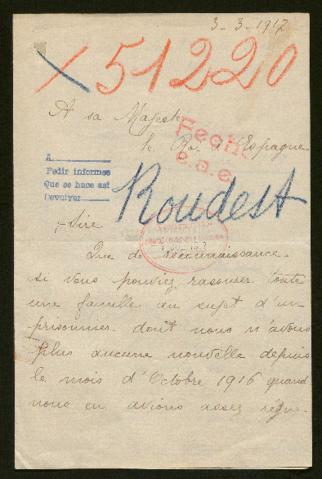 3-3-1917
51220
A sa Majesté
le Roi d'Espagne
Fecho
e.a.e.
A
Pedir informes
Que se hace así
Devolver
Roudest
Sire
Que de reconnaissance
si vous pouviez rassurer toute
une famille au sujet d'un
prisonnier dont nous n'avons
plus aucune nouvelle depuis
le mois d'Octobre 1916 quand
nous en avions assez régu-